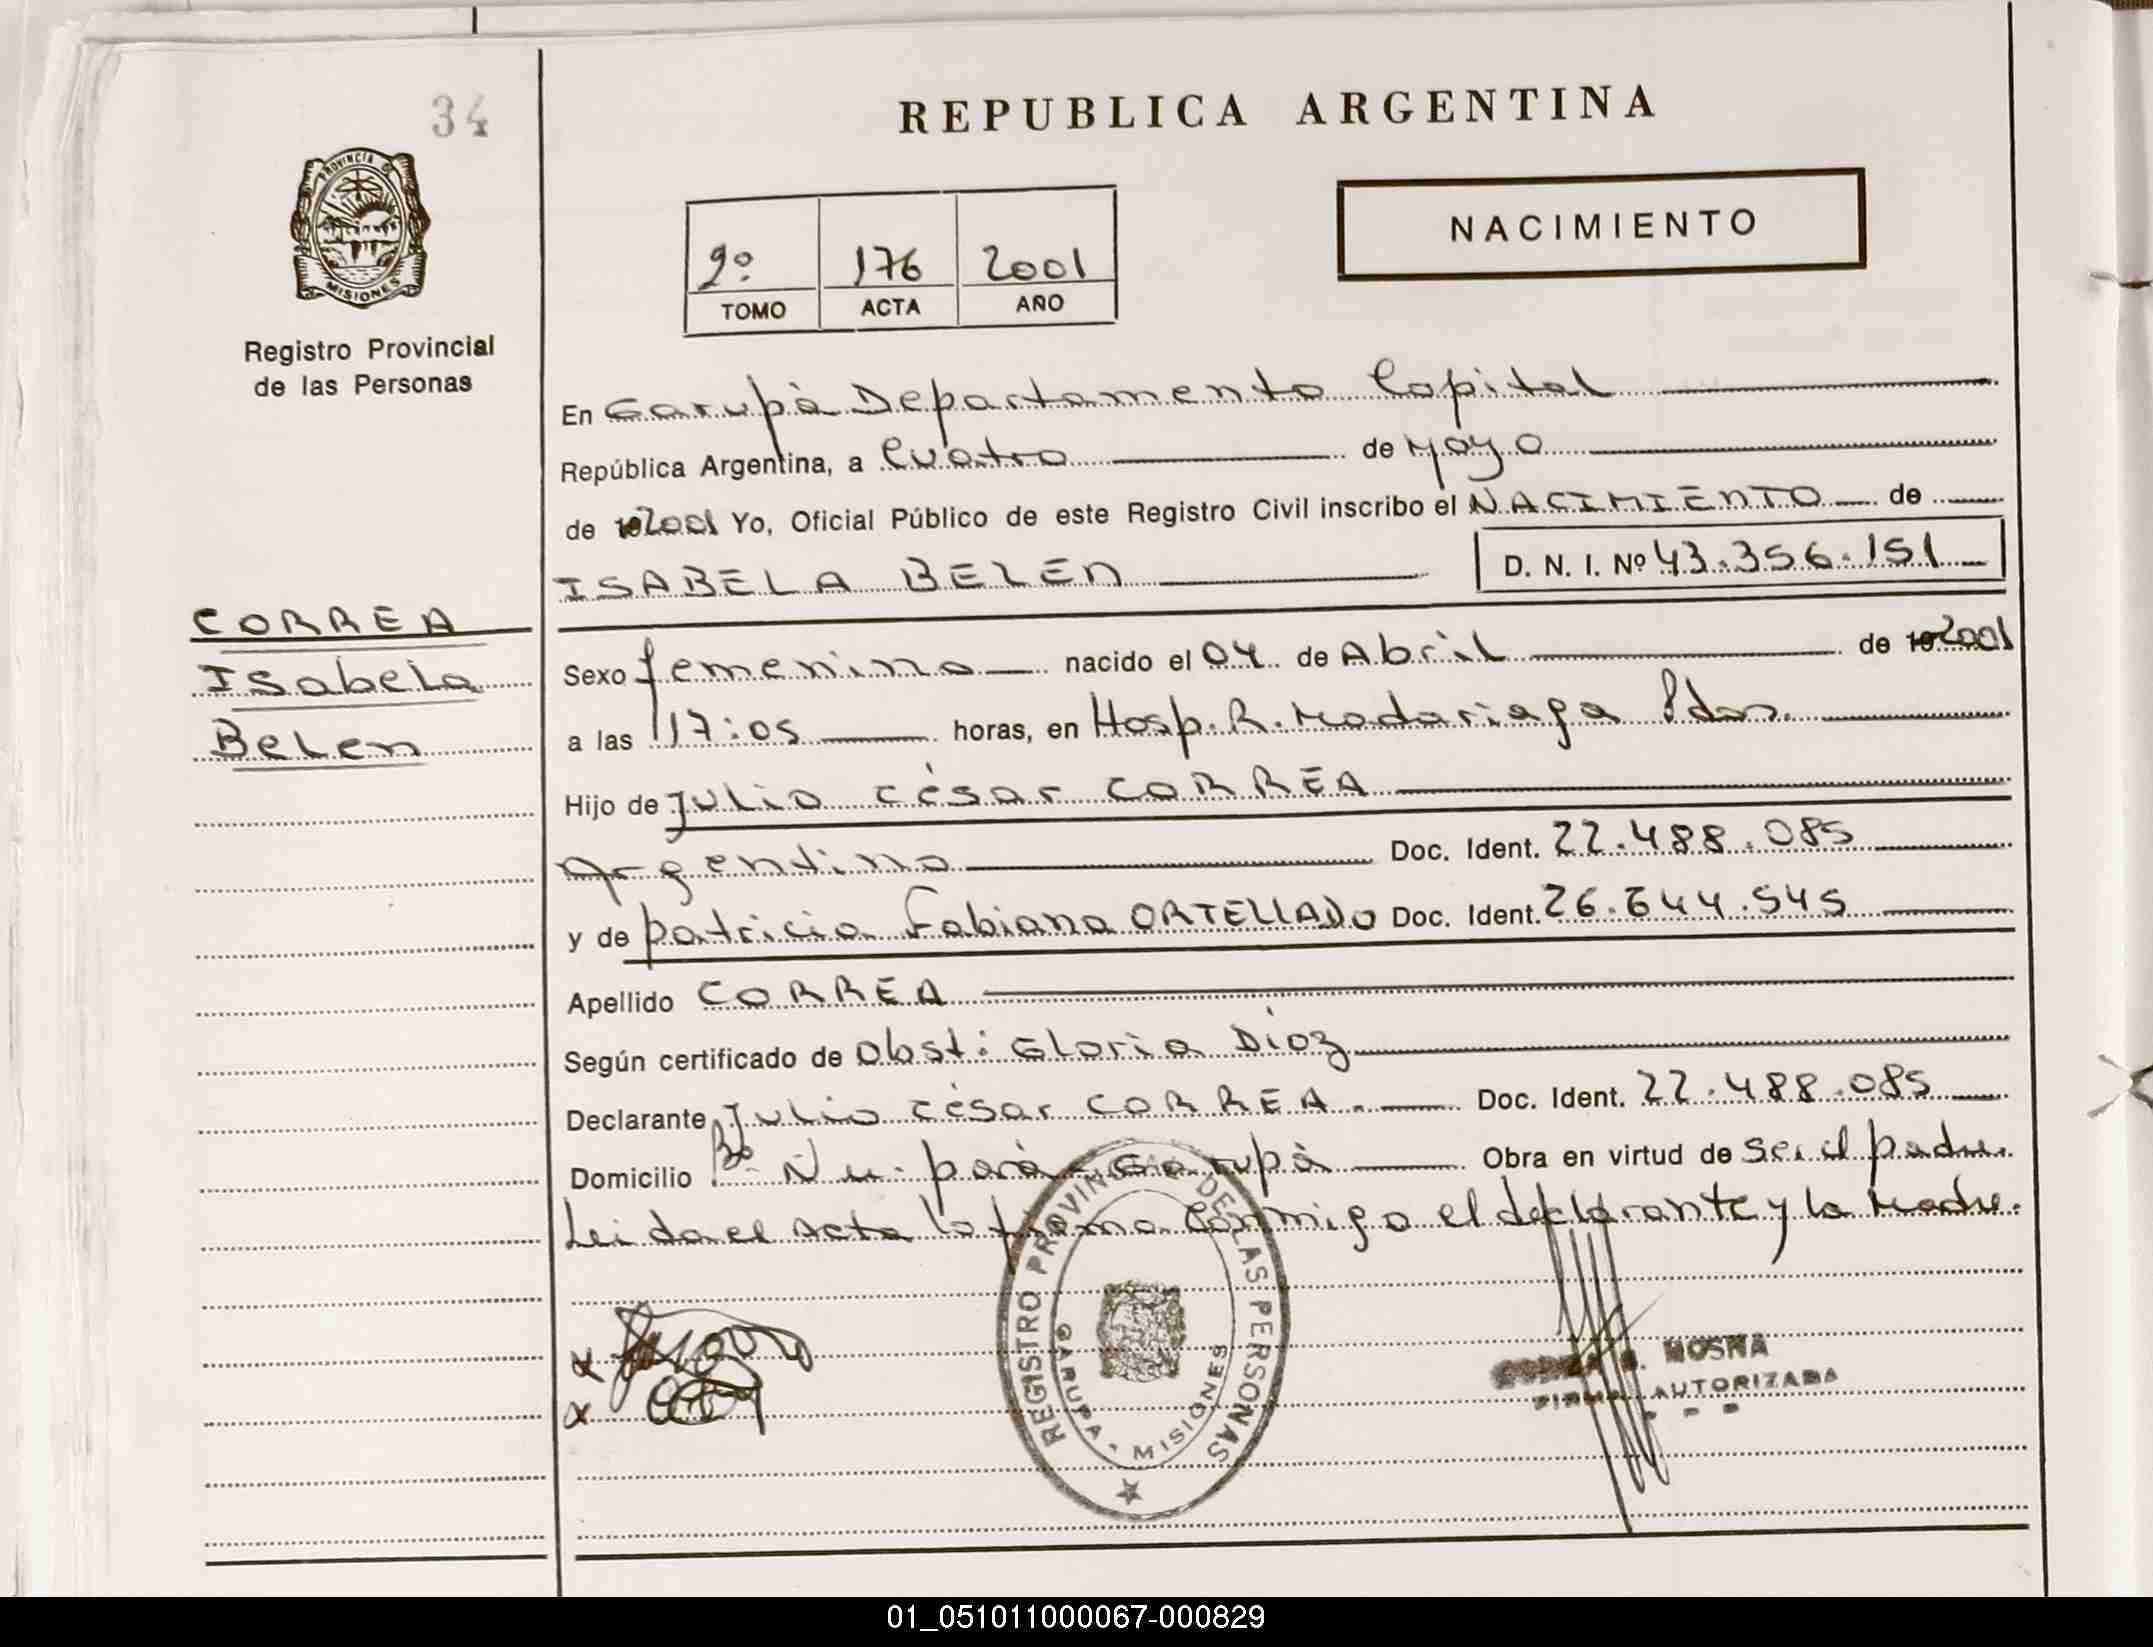 34
REPUBLICA ARGENTINA
PROVINCIA DE
MISIONES
Registro Provincial
de las Personas
2º 176 2001
TOMO ACTA AÑO
NACIMIENTO
En Garupà Departamento Capital
República Argentina, a Cuatro de Mayo
de 192001 Yo, Oficial Público de este Registro Civil inscribo el NACIMIENTO de
ISABELA BELEN D. N. I. Nº 43.356.151
CORREA
Isabela
Belen
Sexo femenino nacido el 04 de Abril de 192001
a las 17:05 horas, en Hosp. R. Madariaga Pdas.
Hijo de Julio césar CORREA
Argentino Doc. Ident. 22.488.085
y de patricia Fabiana ORTELLADO Doc. Ident. 26.644.545
Apellido CORREA
Según certificado de Obst: Gloria Díaz
Declarante Julio césar CORREA. Doc. Ident. 22.488.085
Domicilio Bº Ñu-porà - Garupà Obra en virtud de ser el padre.
Leida el Acta la firma Conmigo el declarante y la Madre.
REGISTRO PROVINCIAL DE LAS PERSONAS
GARUPA - MISIONES
MOSNA
FIRMA AUTORIZADA
01_051011000067-000829